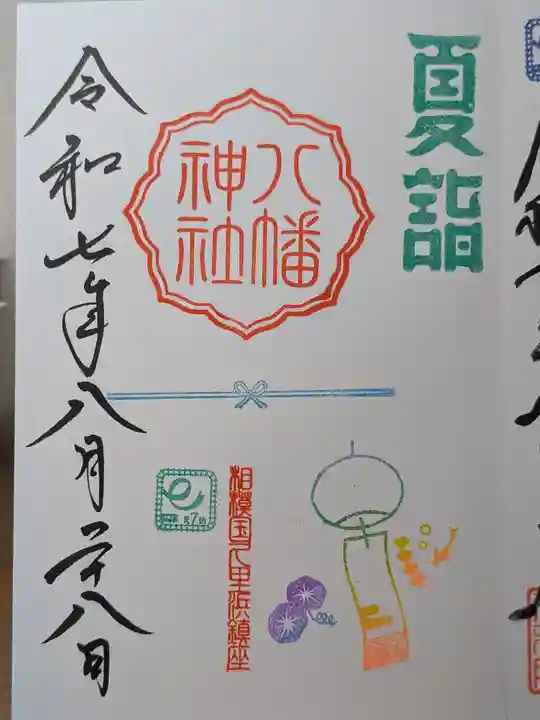 夏詣
八幡
神社
相模国久里浜鎮座
令和七年八月二十八日